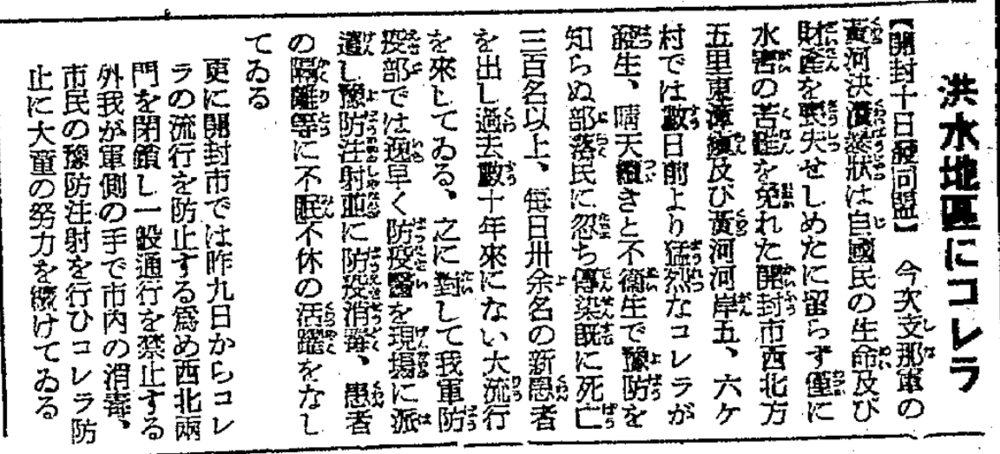 洪水地區にコレラ
【開封十日發同盟】 今次支那軍の
黃河決潰暴狀は自國民の生命及び
財產を喪失せしめたに留らず僅に
水害の苦難を免れた開封市西北方
五里東漳鎭及び黃河河岸五、六ケ
村では數日前より猛烈なコレラが
發生、晴天續きと不衞生で豫防を
知らぬ部落民に忽ち傳染既に死亡
三百名以上、每日卅余名の新患者
を出し過去數十年來にない大流行
を來してゐる、之に對して我軍防
疫部では逸早く防疫醫を現場に派
遣し豫防注射並に防疫消毒、患者
の隔離等に不眠不休の活躍をなし
てゐる
更に開封市では昨九日からコレ
ラの流行を防止する爲め西北兩
門を閉鎖し一般通行を禁止する
外我が軍側の手で市內の消毒、
市民の豫防注射を行ひコレラ防
止に大童の努力を續けてゐる